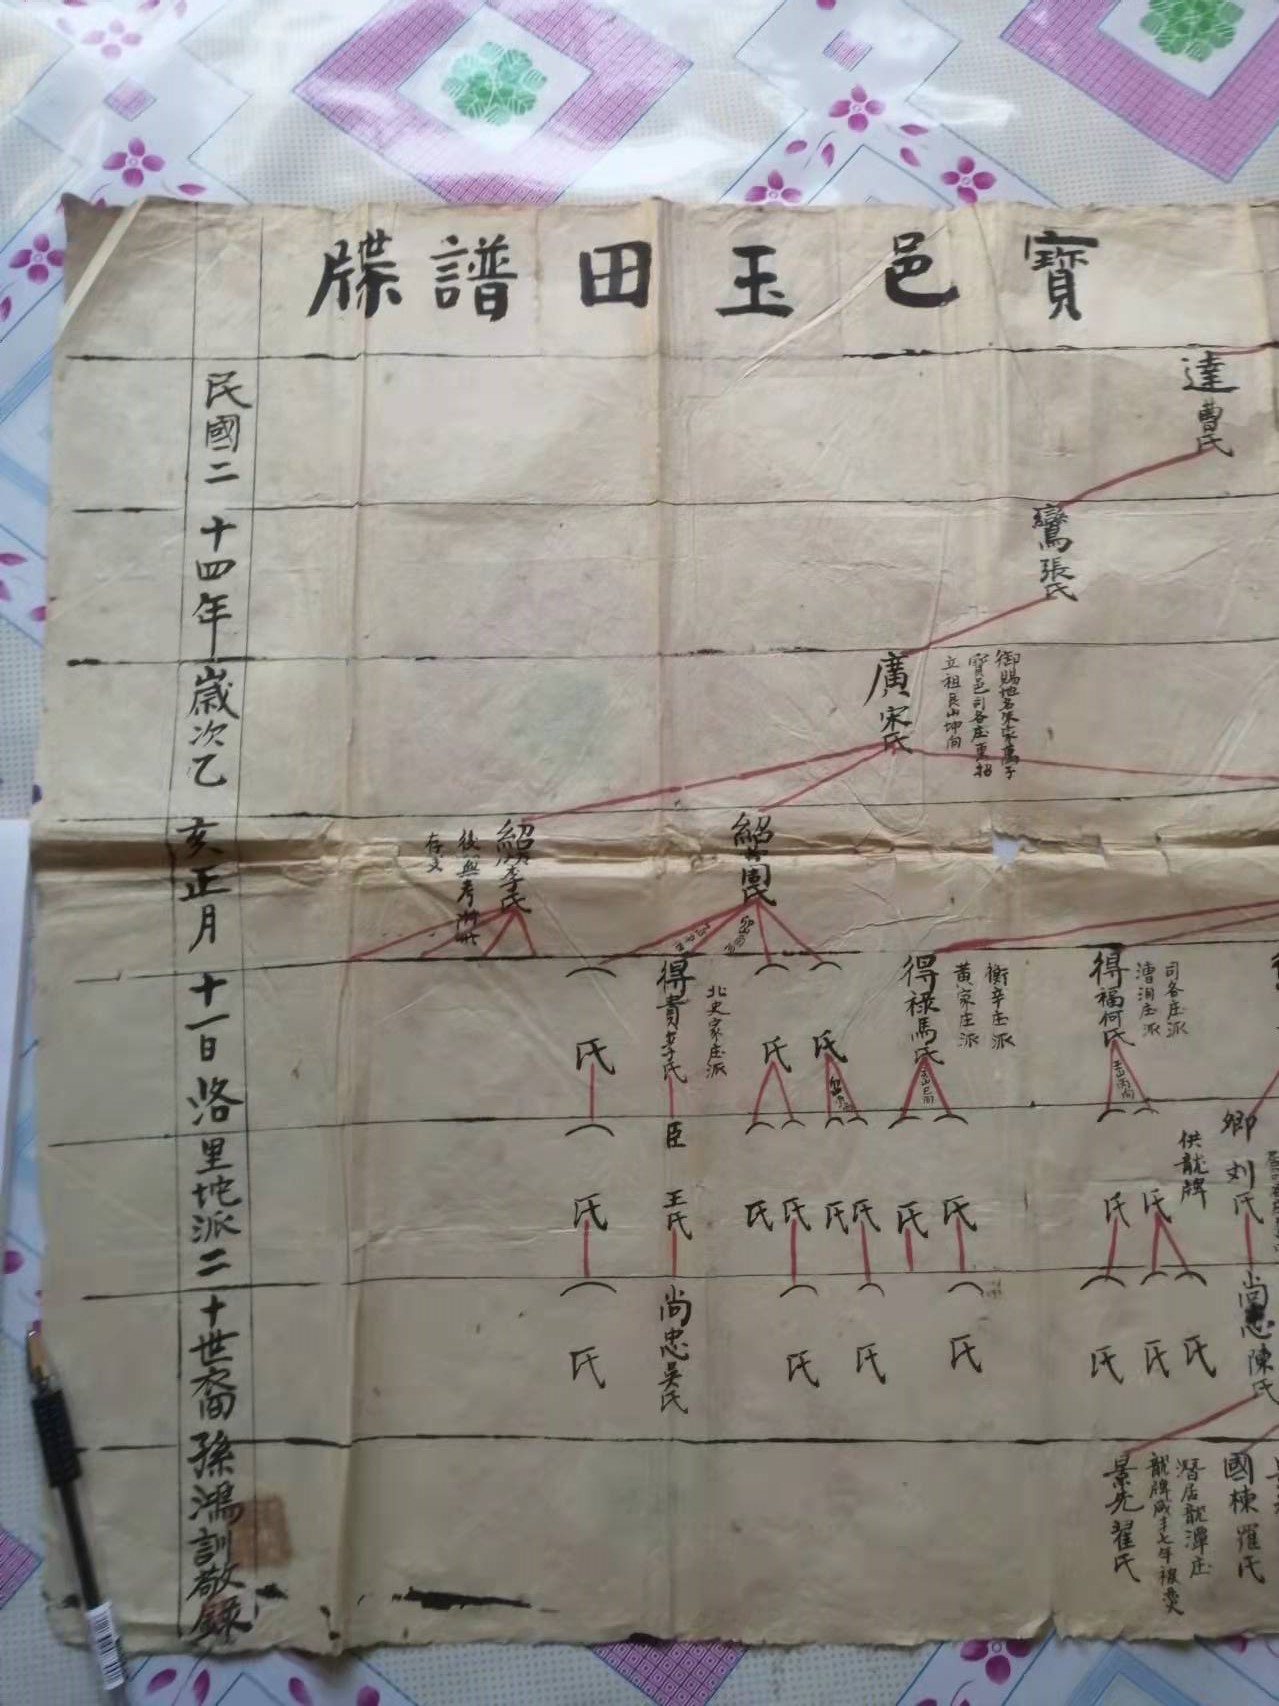 寶邑玉田譜牒
達 曹氏
鸞 張氏
廣 宋氏
寶邑司各庄東招
立祖艮山坤向
紹 周氏
紹 李氏
後無考
存文
得福 何氏
司各庄派
漕洵庄派
得祿 馬氏
衡辛庄派
黃家庄派
得貴 李氏
北史家庄派
氏
氏
氏
卿 刘氏
供龍牌
氏
氏
氏
氏
氏
氏
氏
氏
臣 王氏
氏
尚忠 陳氏
氏
氏
氏
氏
氏
氏
尚忠 吴氏
氏
國棟 羅氏
景先 翟氏
潛居龍潭庄
民國二十四年歲次乙亥正月十一日洛里坨派二十世裔孫鴻訓敬錄